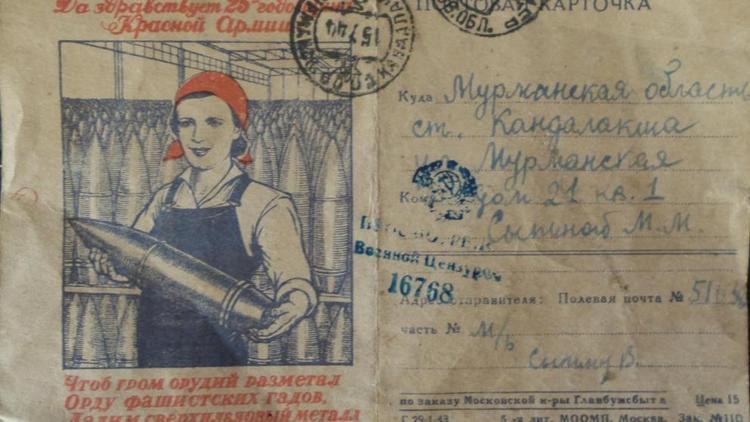 Да здравствует 25 годо
Красной Армии
Чтоб гром орудий разметал
Орду фашистских гадов,
Дадим сверхплановый металл
15 7 44
ПОЧТОВАЯ КАРТОЧКА
Куда Мурманская область
ст. Кандалакша
Мурманская
Кому дом 21 кв. 1
Сыпиной М. М.
Военной Цензурой
16768
Адрес отправителя: Полевая почта №
часть № м/ч
Сыпину В.
по заказу Московской к-ры Главбумсбыт а Цена 15
Г 29-1-43 5-я лит. МООМП, Москва. Зак. №110